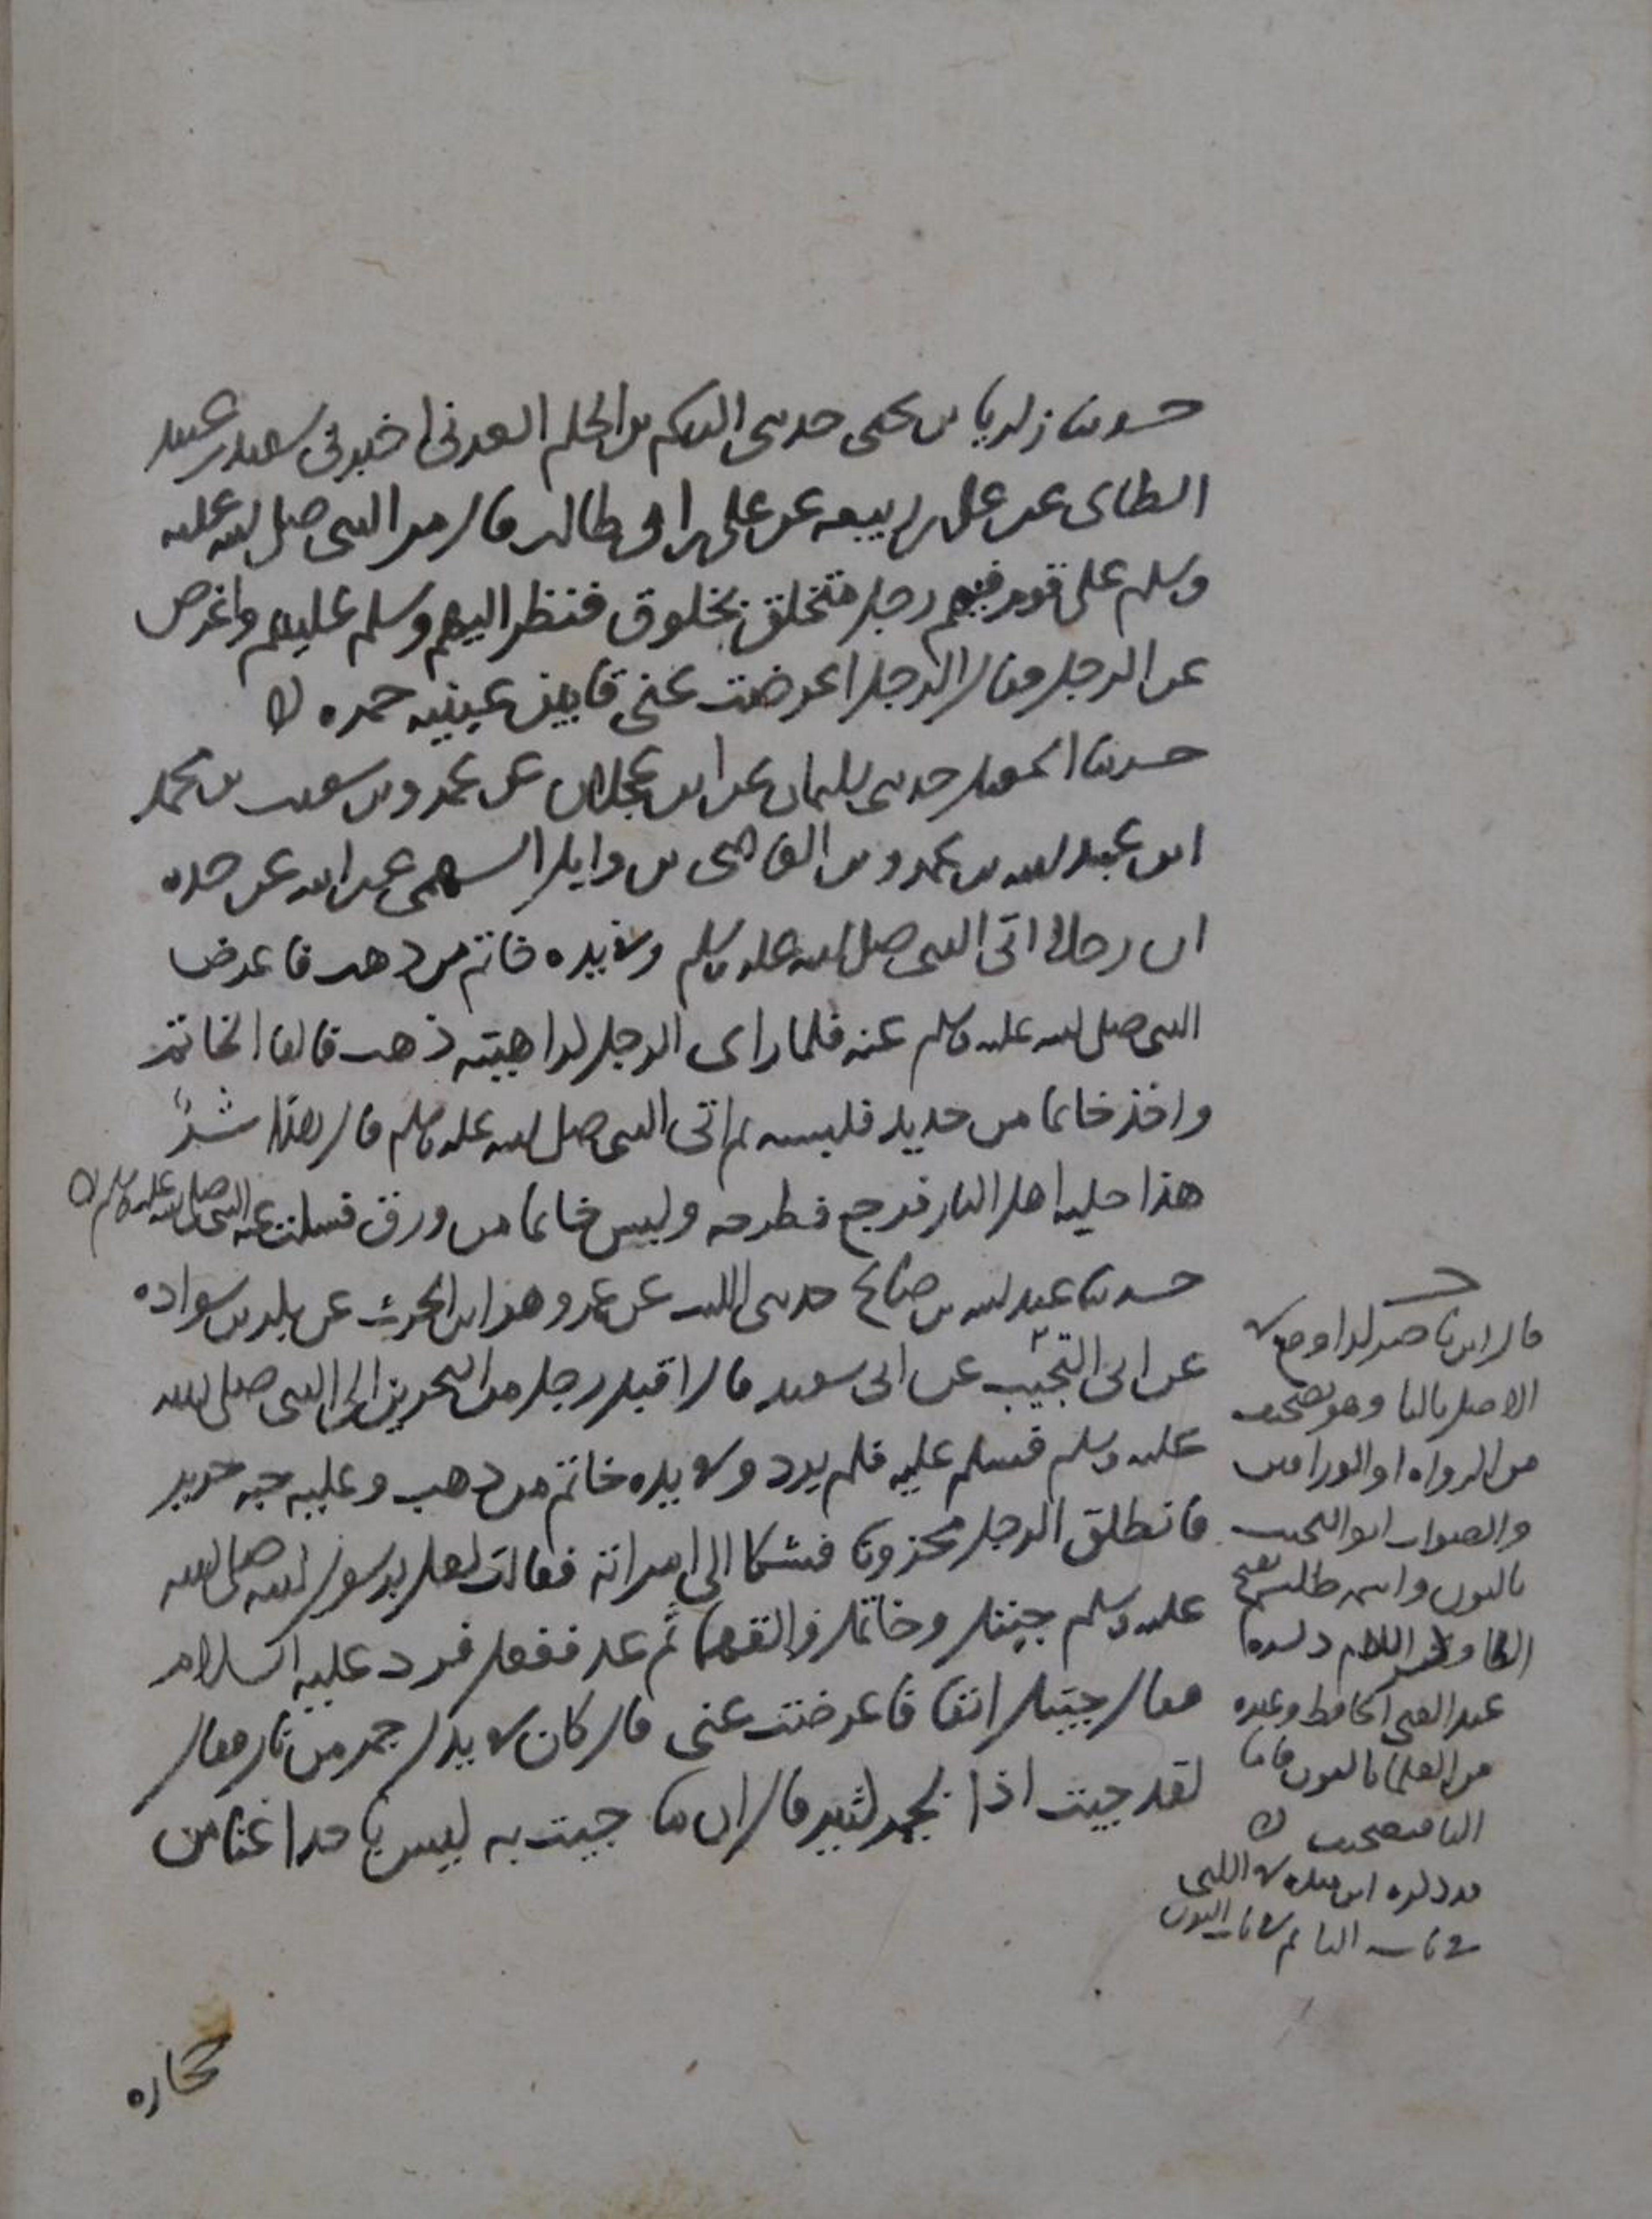 حدثنا زكريا بن يحيى حدثني القسم بن الحكم العرني اخبرني سعيد بن عبيد
الطائي عن علي بن ربيعه عن علي بن ابي طالب قال مر النبي صلى الله عليه
وسلم على قوم فيهم رجل متخلق بخلوق فنظر اليهم وسلم عليهم واعرض
عن الرجل فقال الرجل اعرضت عني قال بين عينيه جمره
حدثنا اسمعيل حدثني سليمان عن ابن عجلان عن عمرو بن شعيب بن محمد
ابن عبد الله بن عمرو بن العاصي بن وايل السهمي عن ابيه عن جده
ان رجلا اتى النبي صلى الله عليه وسلم وفي يده خاتم من ذهب فاعرض
النبي صلى الله عليه وسلم عنه فلما راى الرجل كراهيته ذهب فالقا الخاتم
واخذ خاتما من حديد فلبسه ثم اتى النبي صلى الله عليه وسلم قال هذا شر
هذا حليه اهل النار فرجع فطرحه ولبس خاتما من ورق فسكت عنه النبي صلى الله عليه وسلم
حدثنا عبد الله بن صالح حدثني الليث عن عمرو هو ابن الحرث عن بكر بن سواده
عن ابي التجيب عن ابي سعيد قال اقبل رجل من البحرين الى النبي صلى الله
عليه وسلم فسلم عليه فلم يرد وفي يده خاتم من ذهب وعليه جبه حرير
فانطلق الرجل محزونا فشكا الى امراته فقالت لعل برسول الله صلى الله
عليه وسلم جبتك وخاتمك فالقهما ثم عد ففعل فرد عليه السلام
فقال جيتك انفا فاعرضت عني قال كان في يدك جمر من نار فقال
لقد جيت اذا بجمر كثير قال ان ما جيت به ليس باحد اغنا من
حجاره
قال ابن ناصر كذا وقع في
الاصل بالتا وهو تصحيف
من الرواه او الوراقين
والصواب ابو النجيب
بالنون واسمه ظليم بفتح
الظا وكسر اللام ذكره
عبد الغني الحافظ وغيره
من العلما بالنون فاما
التا فتصحيف
قد ذكره ابن منده في الكنى
في باب التا ثم في باب النون